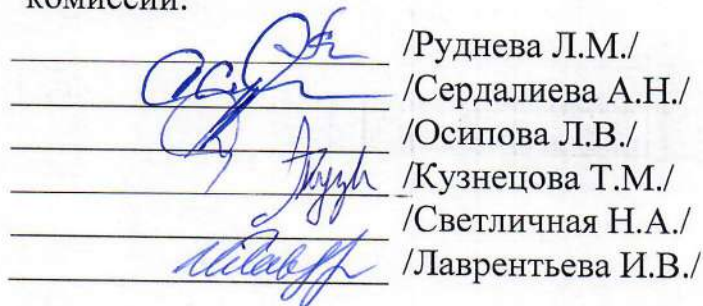 комиссии:
/Руднева Л.М./
/Сердалиева А.Н./
/Осипова Л.В./
/Кузнецова Т.М./
/Светличная Н.А./
/Лаврентьева И.В./